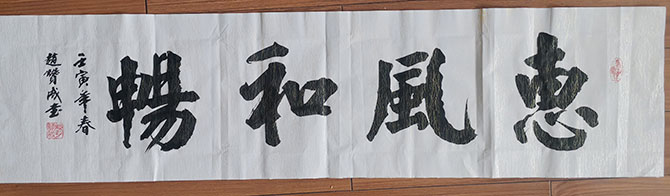 惠風和暢
壬寅年春
趙贊成書